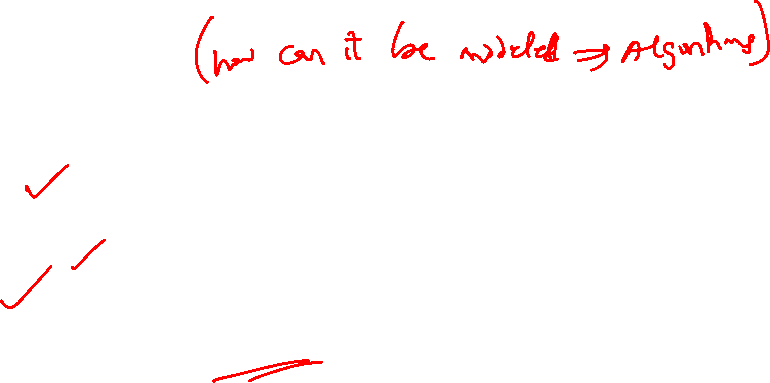 (how can it be modeled ⇒ Algorithms)